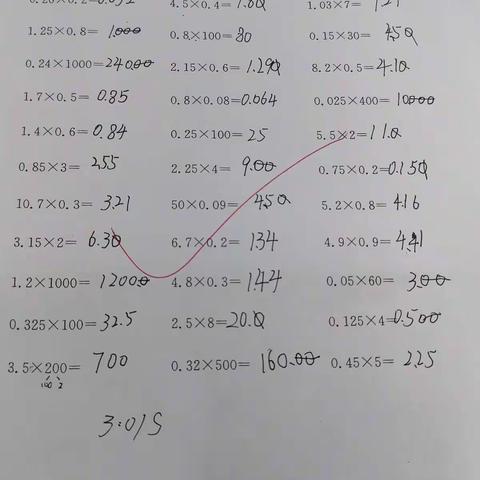 4.5×0.4= 1.80 1.03×7= 
1.25×0.8= 1.000 0.8×100= 80 0.15×30= 4.50
0.24×1000= 240.00 2.15×0.6= 1.290 8.2×0.5= 4.10
1.7×0.5= 0.85 0.8×0.08= 0.064 0.025×400= 10.000
1.4×0.6= 0.84 0.25×100= 25 5.5×2= 11.0
0.85×3= 2.55 2.25×4= 9.00 0.75×0.2= 0.150
10.7×0.3= 3.21 50×0.09= 4.50 5.2×0.8= 4.16
3.15×2= 6.30 6.7×0.2= 1.34 4.9×0.9= 4.41
1.2×1000= 1200.0 4.8×0.3= 1.44 0.05×60= 3.00
0.325×100= 32.5 2.5×8= 20.0 0.125×4= 0.500
3.5×200= 700 0.32×500= 160.00 0.45×5= 2.25
100 2
3:01S